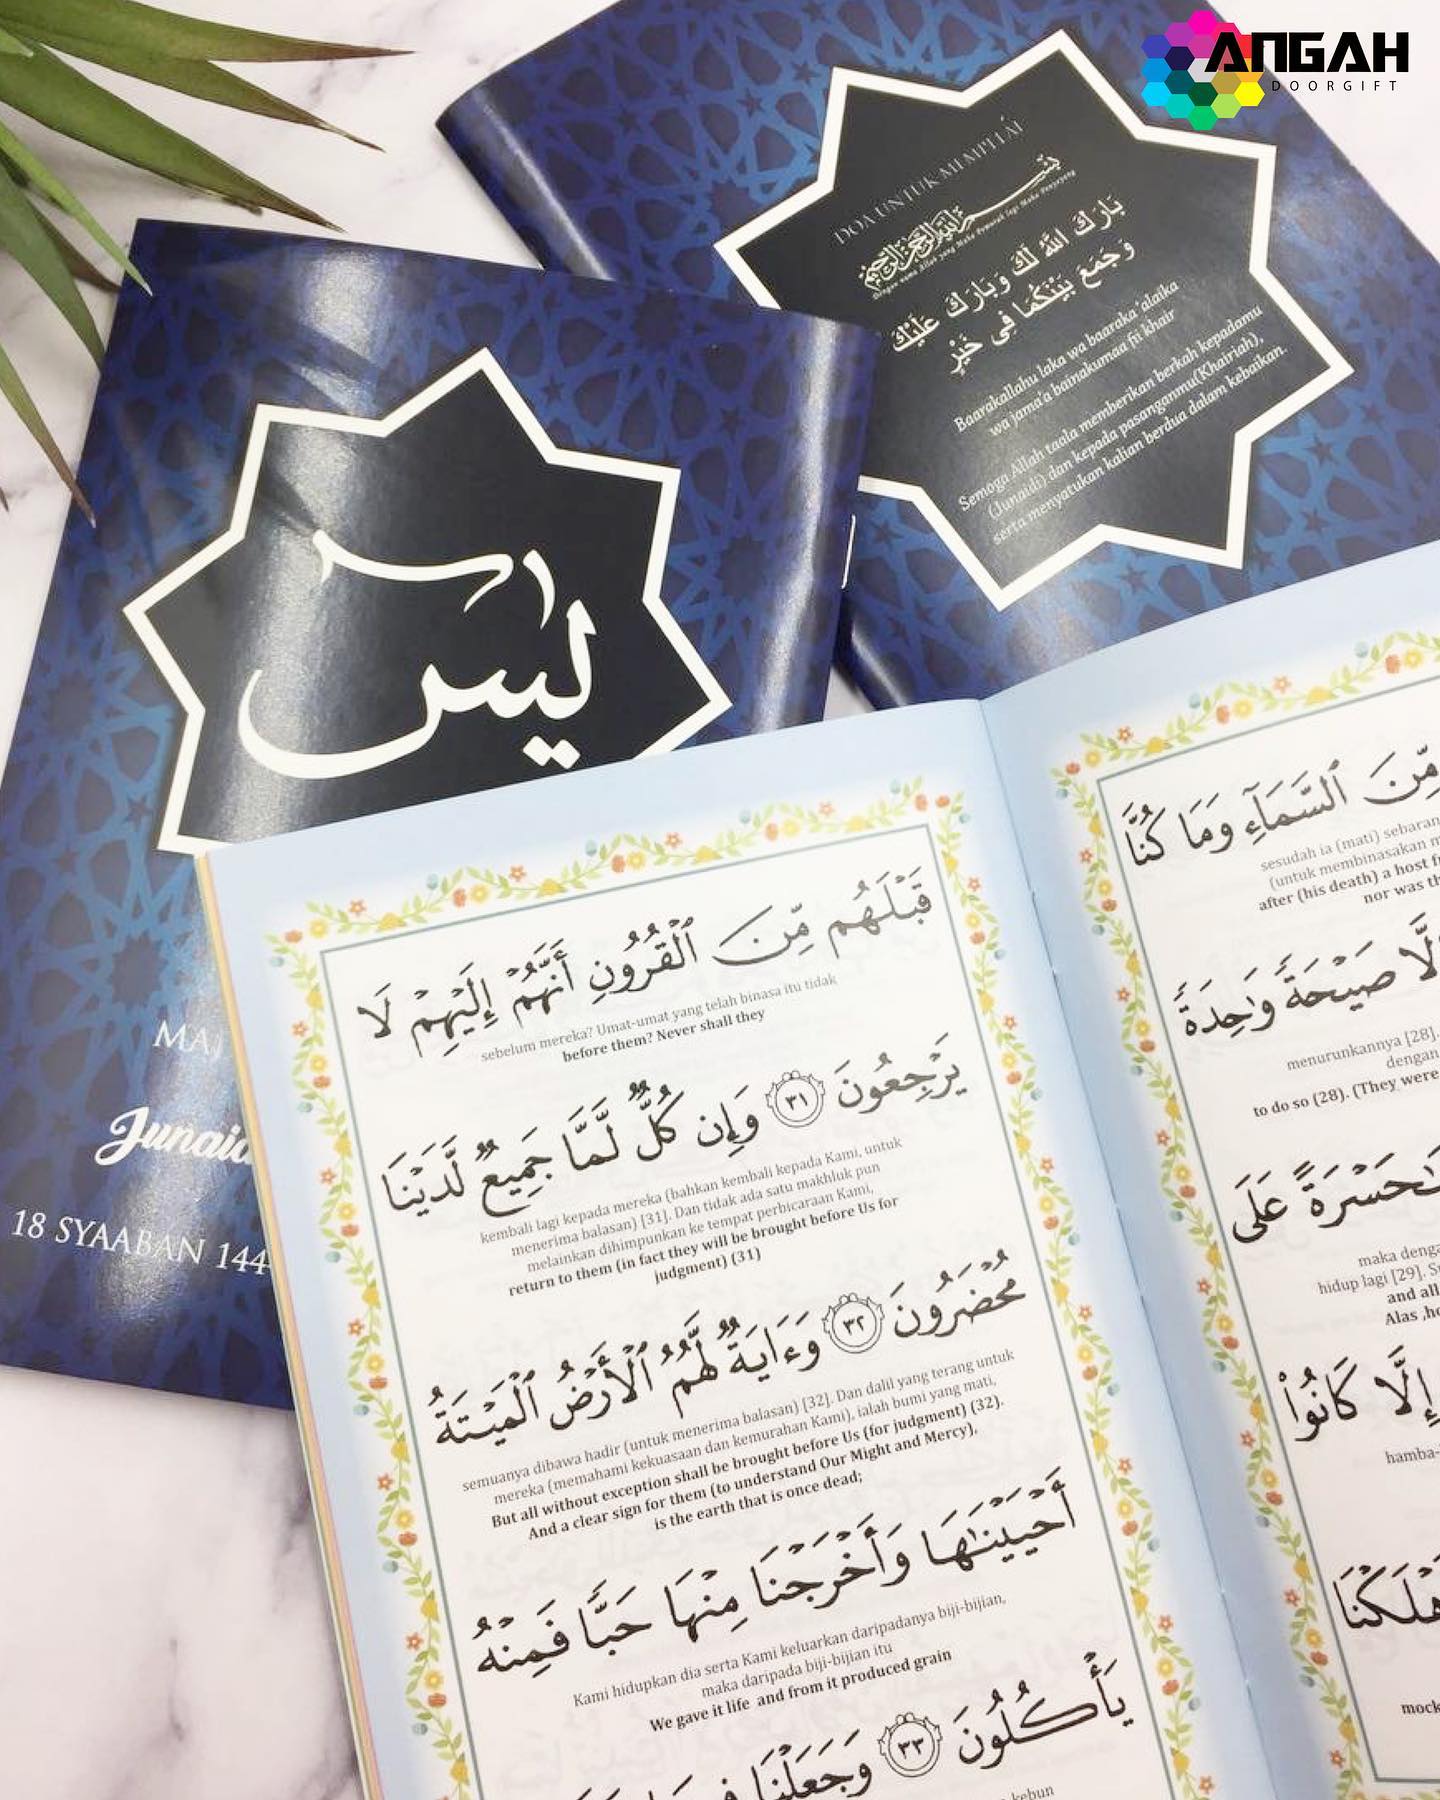 ANGAH
DOORGIFT
DOA UNTUK MEMPELAI
بِسْمِ اللَّهِ الرَّحْمَنِ الرَّحِيمِ
Dengan nama Allah yang Maha Pemurah lagi Maha Penyayang
بَارَكَ اللهُ لَكَ وَبَارَكَ عَلَيْكَ
وَجَمَعَ بَيْنَكُمَا فِى خَيْرٍ
Baarakallahu laka wa baaraka 'alaika
wa jama'a bainakumaa fii khair
Semoga Allah taala memberikan berkah kepadamu
(Junaidi) dan kepada pasanganmu(Khairiah),
serta menyatukan kalian berdua dalam kebaikan.
يس
MAJ
Junaid
18 SYAABAN 144
قَبۡلَهُم مِّنَ ٱلۡقُرُونِ أَنَّهُمۡ إِلَيۡهِمۡ لَا
sebelum mereka? Umat-umat yang telah binasa itu tidak
before them? Never shall they
يَرۡجِعُونَ ٣١ وَإِن كُلّٞ لَّمَّا جَمِيعٞ لَّدَيۡنَا
kembali lagi kepada mereka (bahkan kembali kepada Kami, untuk
menerima balasan) [31]. Dan tidak ada satu makhluk pun
melainkan dihimpunkan ke tempat perbicaraan Kami,
return to them (in fact they will be brought before Us for
judgment) (31)
مُحۡضَرُونَ ٣٢ وَءَايَةٞ لَّهُمُ ٱلۡأَرۡضُ ٱلۡمَيۡتَةُ
semuanya dibawa hadir (untuk menerima balasan) [32]. Dan dalil yang terang untuk
mereka (memahami kekuasaan dan kemurahan Kami), ialah bumi yang mati,
But all without exception shall be brought before Us (for judgment) (32).
And a clear sign for them (to understand Our Might and Mercy),
is the earth that is once dead;
أَحۡيَيۡنَٰهَا وَأَخۡرَجۡنَا مِنۡهَا حَبّٗا فَمِنۡهُ
Kami hidupkan dia serta Kami keluarkan daripadanya biji-bijian,
maka daripada biji-bijian itu
We gave it life and from it produced grain
يَأۡكُلُونَ ٣٣ وَجَعَلۡنَا
kebun
مِّنَ ٱلسَّمَآءِ وَمَا كُنَّا
sesudah ia (mati) sebaran
(untuk membinasakan m
after (his death) a host f
nor was th
إِلَّا صَيۡحَةٗ وَٰحِدَةٗ
menurunkannya [28].
dengan
to do so (28). (They were
حَسۡرَةً عَلَى
maka denga
hidup lagi [29]. S
and all
Alas ,ho
إِلَّا كَانُواْ
hamba-
هۡلَكۡنَا
mock